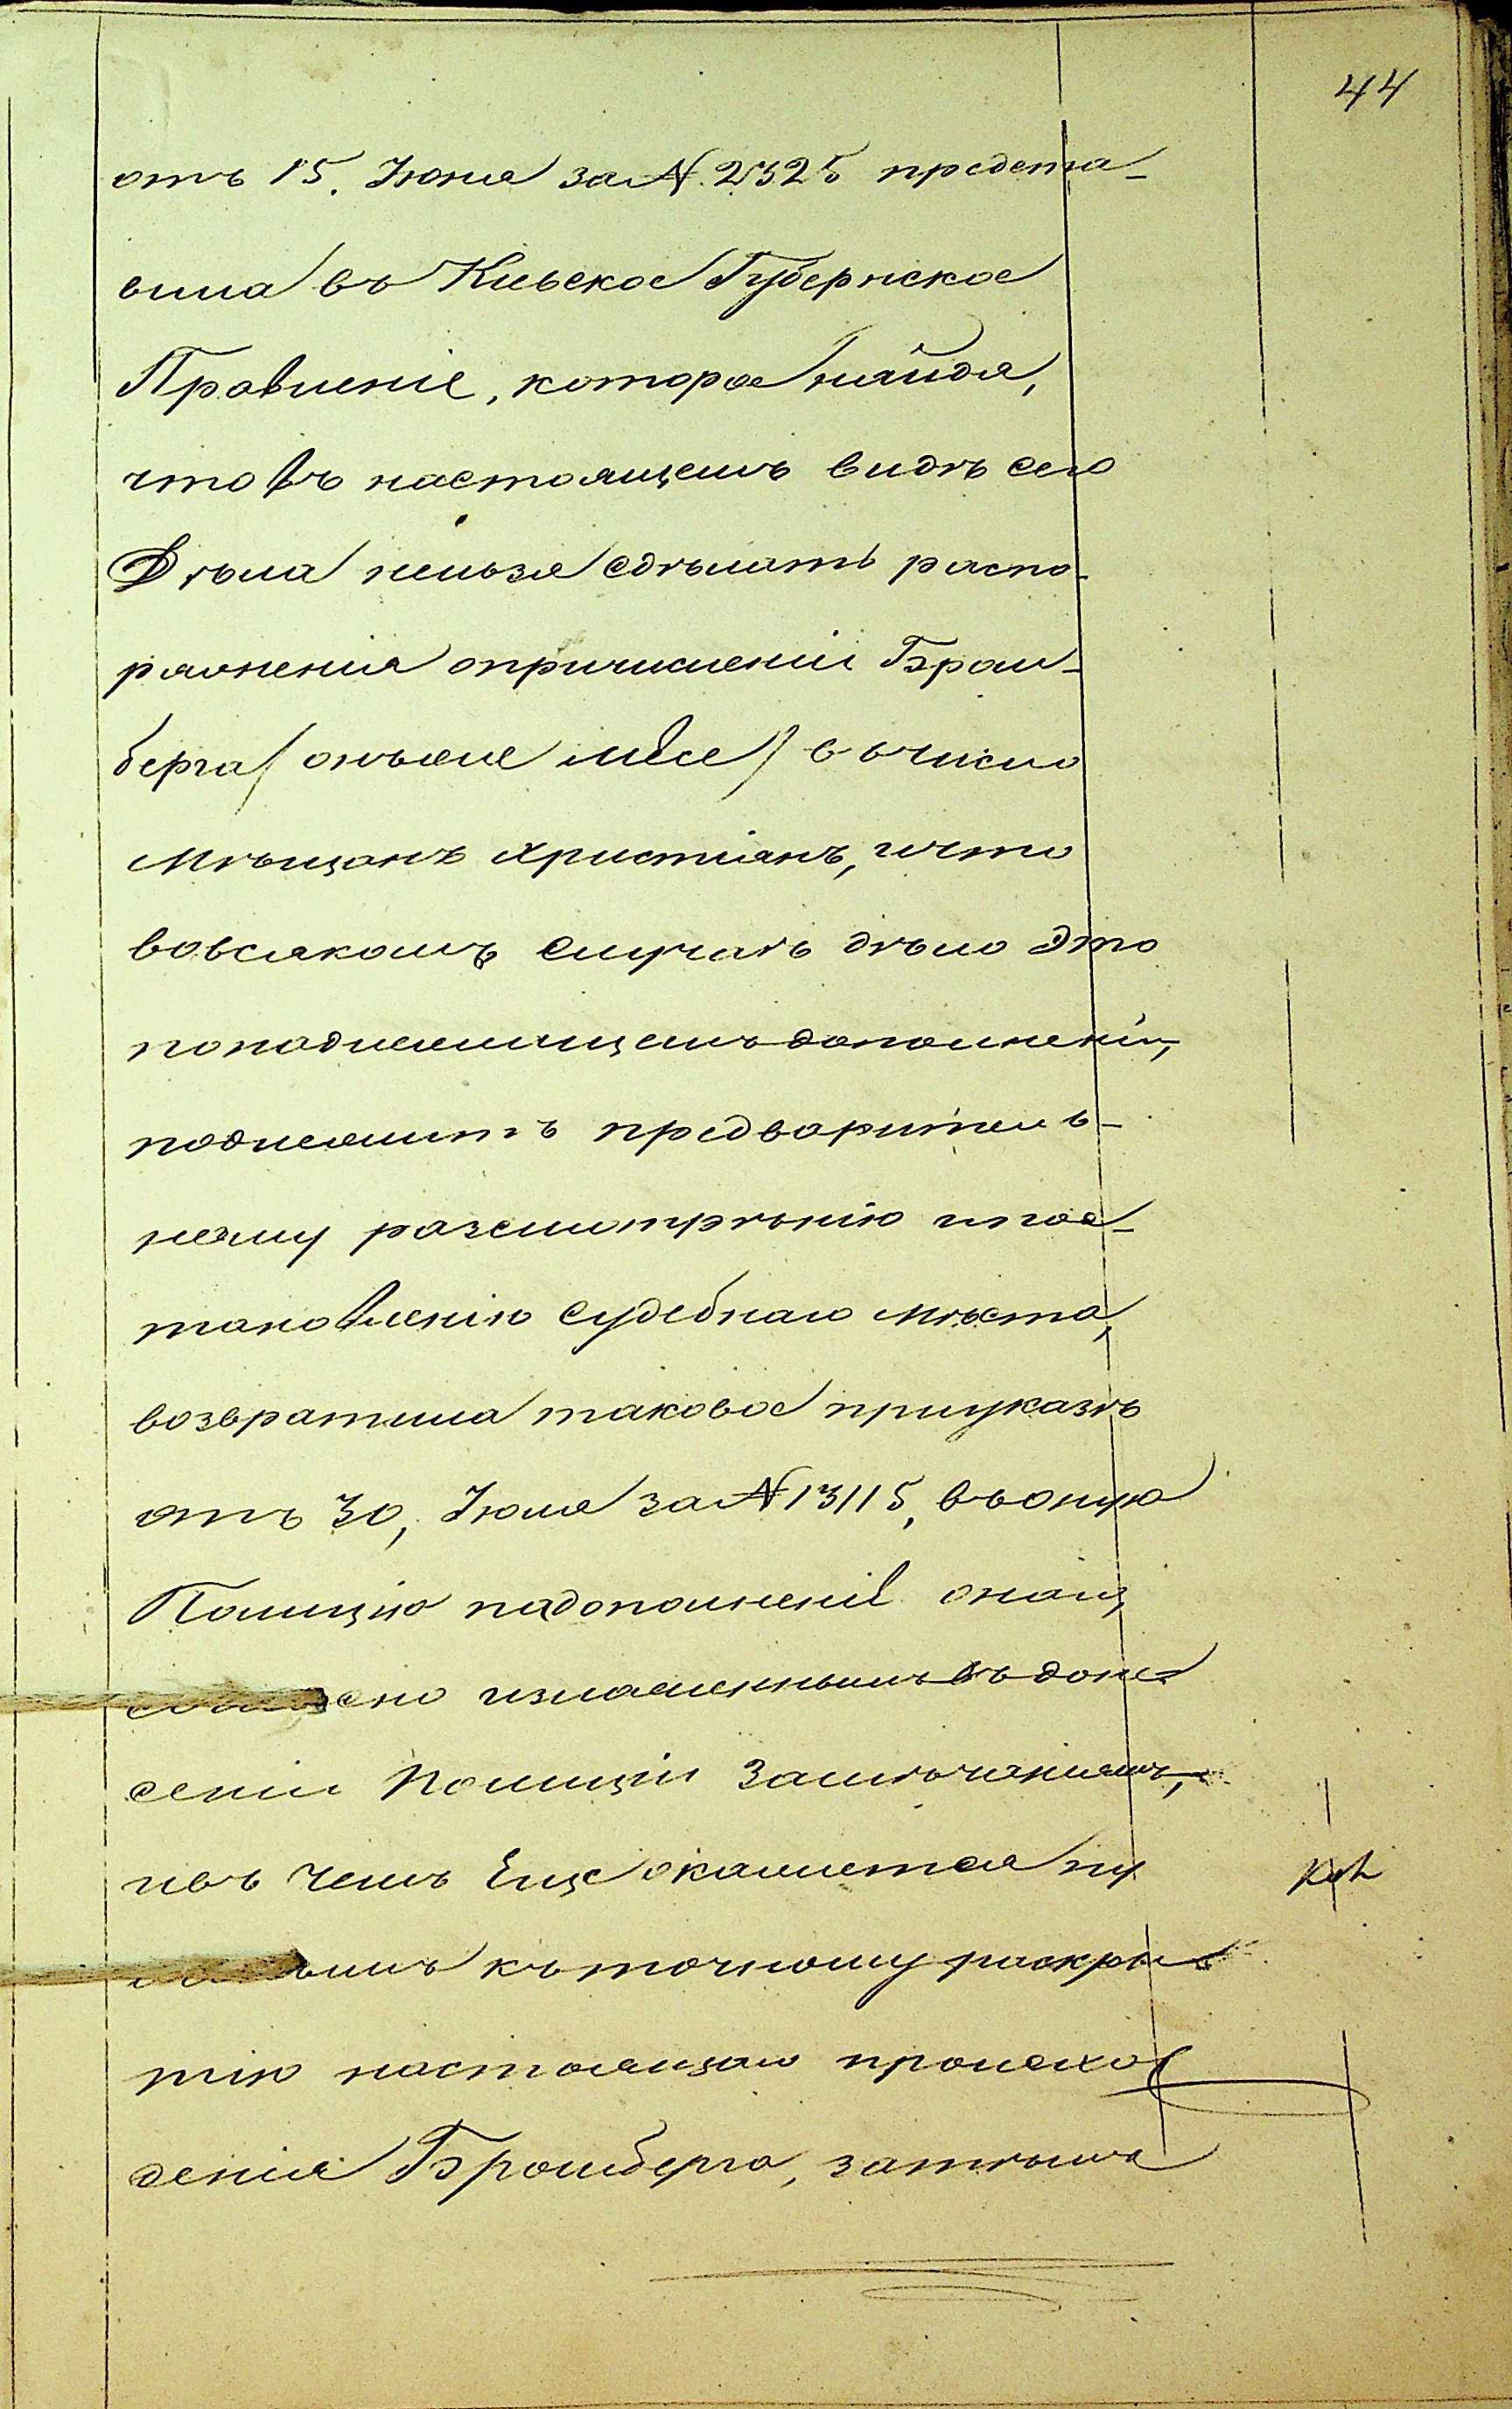 44
отъ 15. Іюня за N. 2325 предста-
вила въ Кіевское Губернское
Правленіе, которое найдя,
что въ настоящемъ видѣ сего
Дѣла нельзя сдѣлать распо-
ряженія опричисленіи Бром-
берга / онъже / въ число
Мѣщанъ христіанъ, ичто
вовсякомъ случаѣ дѣло это
понадлежащемъ дополненіи,
подлежитъ предваритель-
ному разсмотрѣнію ипос-
тановленію судебнаго мѣста,
возвратила таковое приуказѣ
отъ 30, Іюля за N 13115, въ оную
Полицію на дополненіе онаго,
согласно изложеннымъ въ доне-
сеніи Полиціи замѣчаніямъ,
ивъ чемъ Еще окажется ну
къ точному раскры-
тію настоящаго происхо
денія Бромберга, затѣмъ